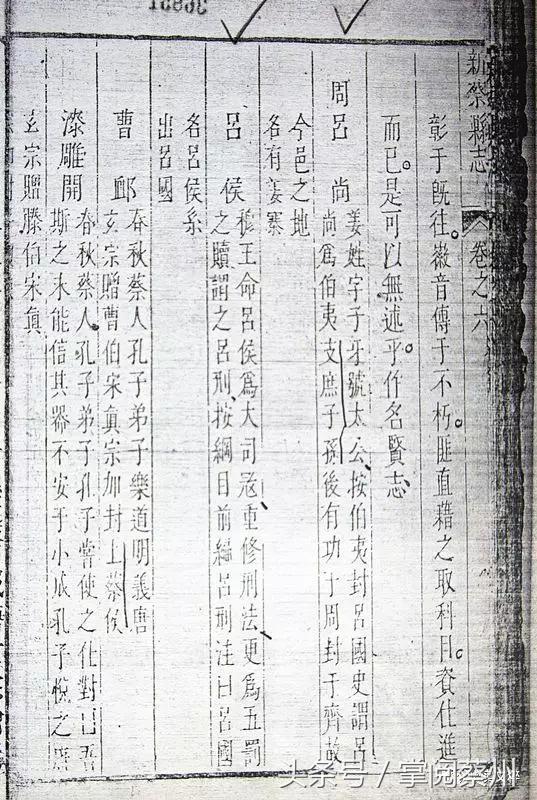 新蔡縣志 卷之六
彰于旣往。徽音傳于不朽。匪直藉之取科目。資仕進
而已。是可以無述乎。作名賢志
周呂尚 姜姓字子牙號太公、按伯夷封呂國史謂呂
尚爲伯夷支庶子孫後有功于周封于齊故
今邑之地
各有姜寨
呂侯 穆王命呂侯爲大司寇重修刑法更爲五罰
之贖謂之呂刑、按綱目前編呂刑注曰呂國
名呂侯系
出呂國
曹卹 春秋蔡人孔子弟子樂道明義唐
玄宗贈曹伯宋眞宗加封上蔡侯
漆雕開 春秋蔡人孔子弟子孔子嘗使之仕對曰吾
斯之未能信其器不安于小成孔子悅之唐
玄宗贈滕伯宋眞
头条号 / 掌阅蔡州